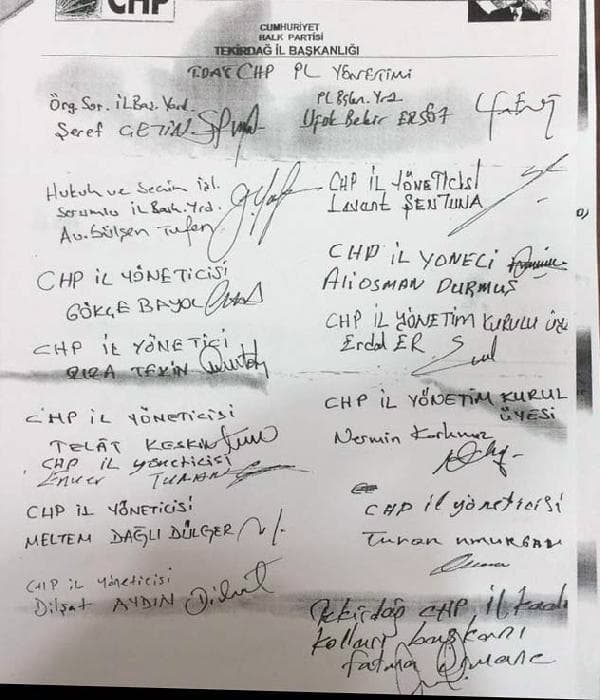 CHP
CUMHURİYET
HALK PARTİSİ
TEKİRDAĞ İL BAŞKANLIĞI
CHP YÖNETİMİ
Örg. Sor. İL Baş. Yard.
Şeref ÇETİN
PL Bşkn. Yrd.
Ufuk Bekir ERSÖZ
Hukuk ve Seçim
Sorumlu İL Bşk. Yrd.
Av. Gülşen
CHP İL YÖNETİCİSİ
Levent ŞENTUNA
CHP İL YÖNETİCİSİ
GÖKÇE BAYOL
CHP İL YONECİ
Ali OSMAN DURMUŞ
CHP İL YÖNETİCİ
RIZA TEKİN
CHP İL YÖNETİM KURULU
Erdal ER
CHP İL YÖNETİCİSİ
TELÂT KESKİN
CHP İL YÖNETİM KURUL
ÜYESİ
Nermin Korkmaz
CHP İL yöneticisi
Enver TURAN
CHP İL YÖNETİCİSİ
MELTEM DAĞLI DÜLGER
CHP il yöneticisi
Turan
CHP İL Yöneticisi
Dilşat AYDIN
Tekirdağ CHP il
kolları başkanı
Fatma